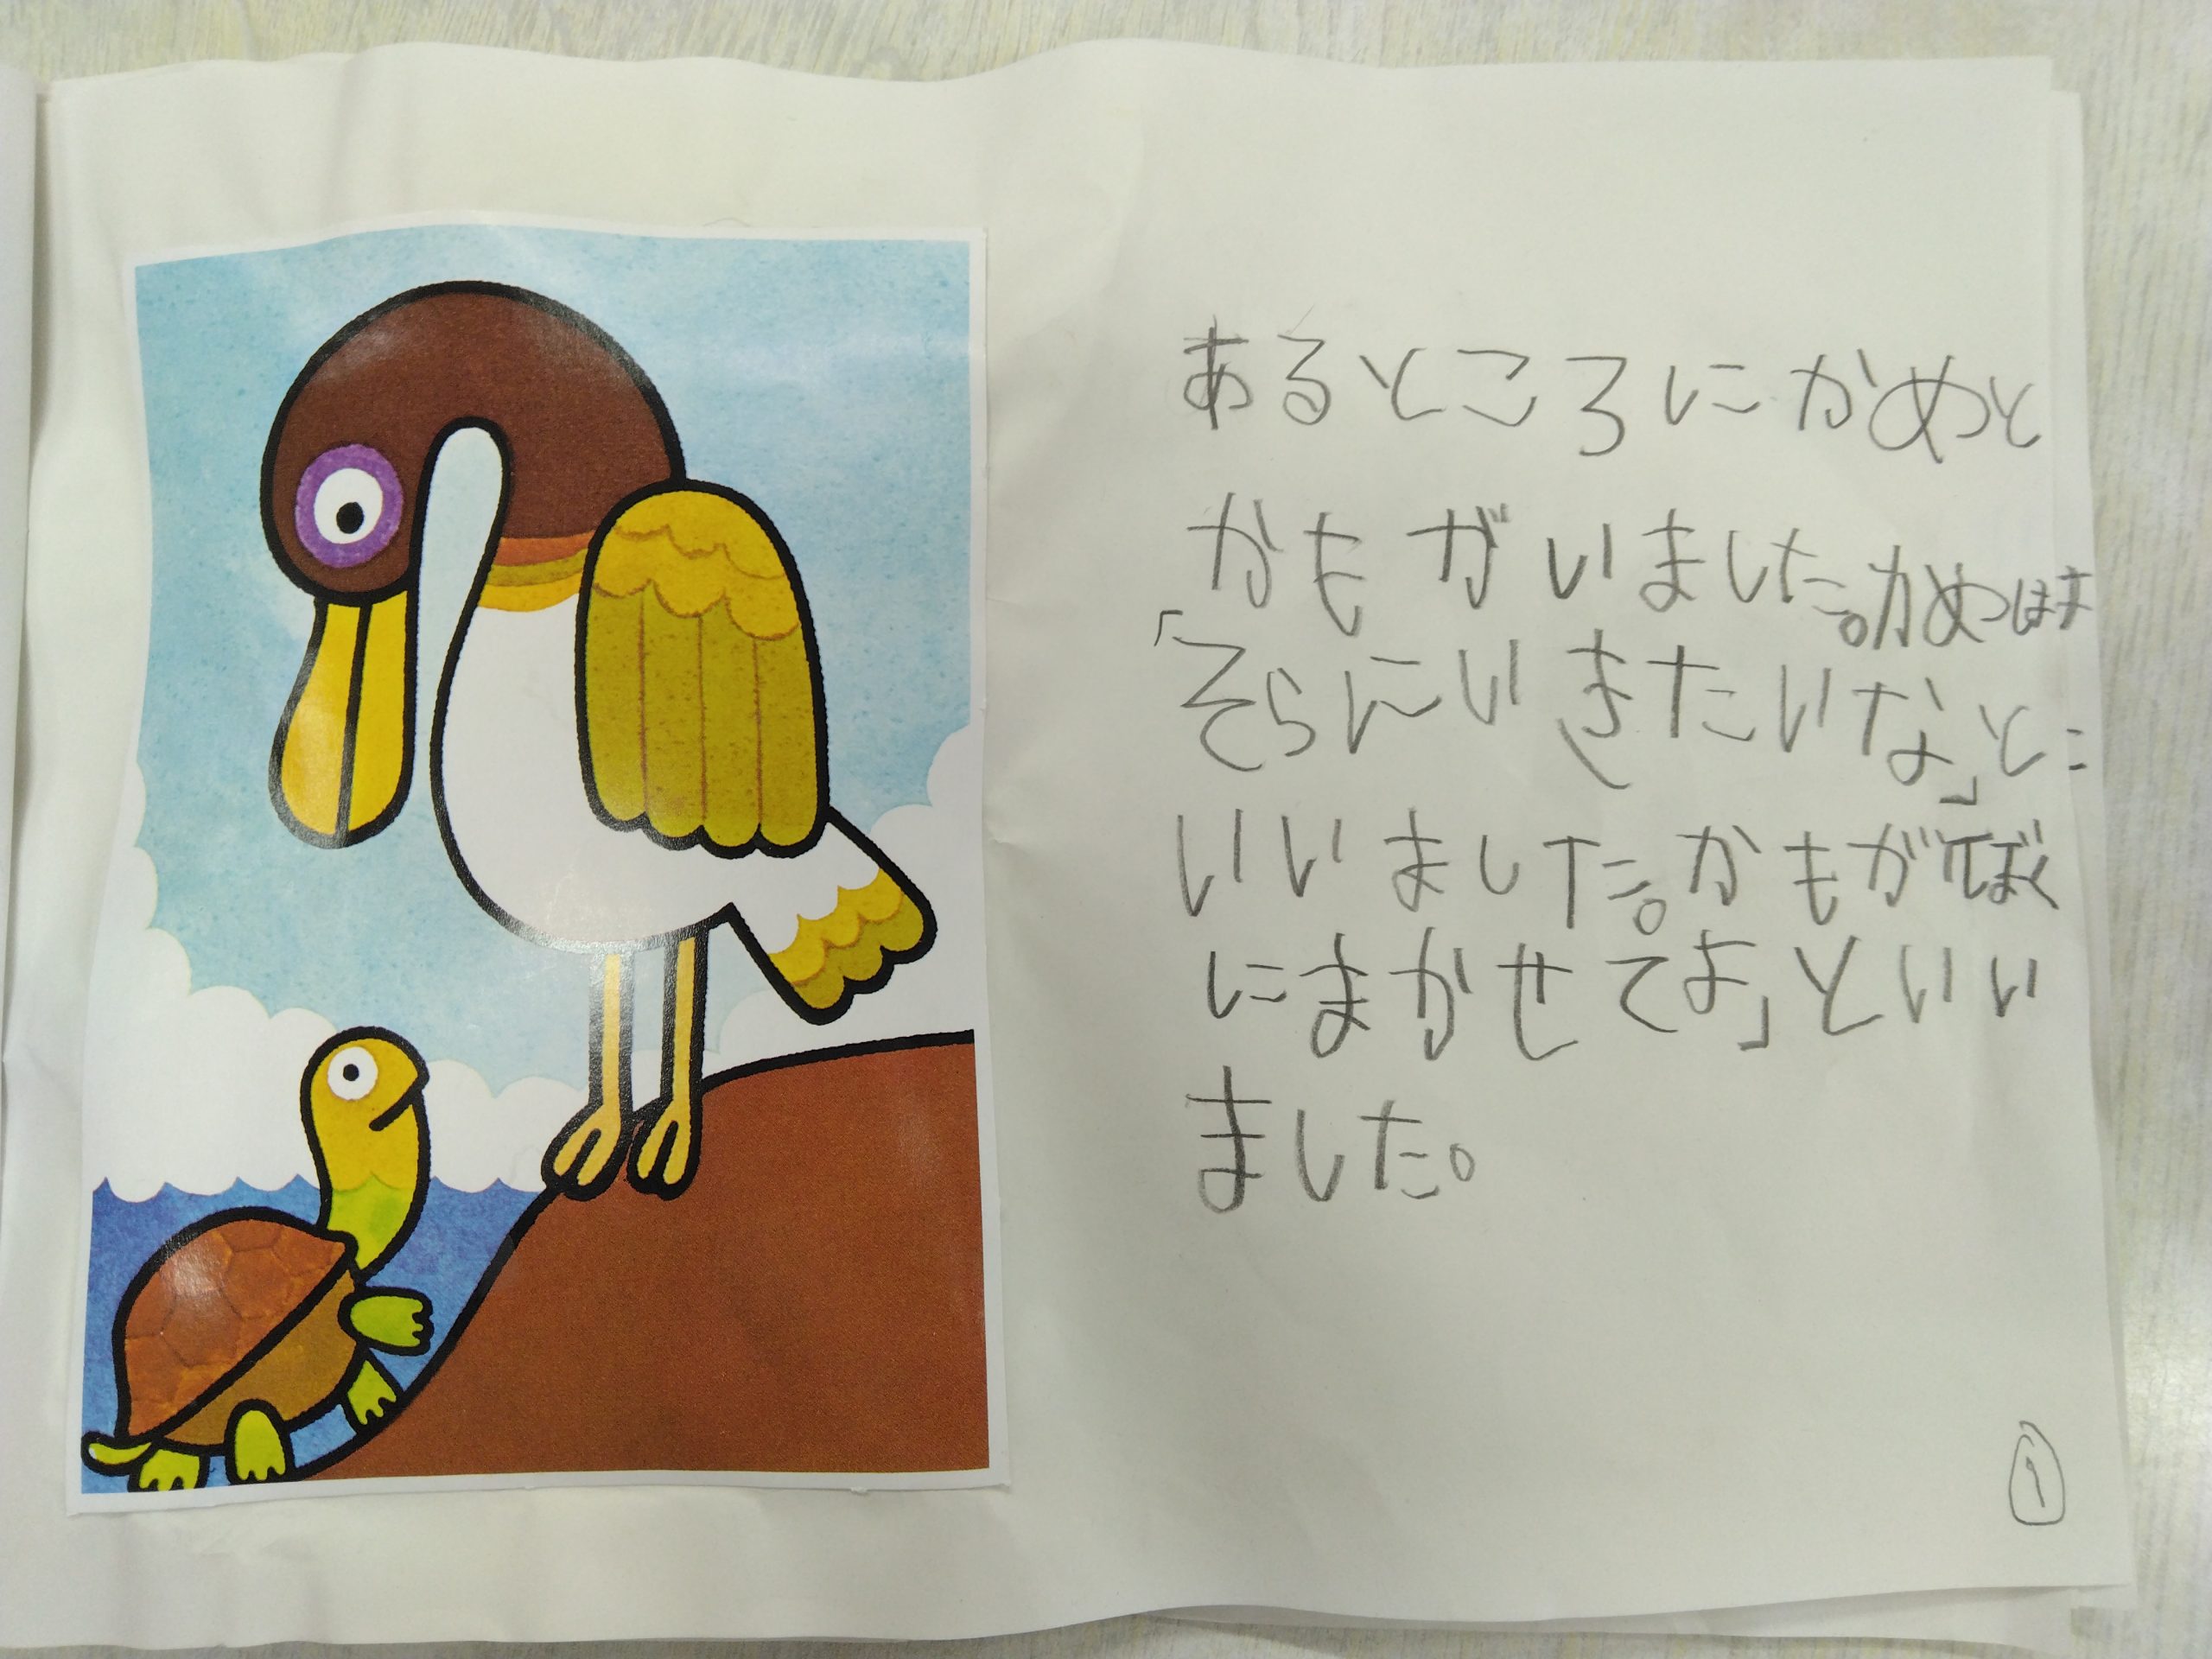 あるところにかめと
かもがいました。かめは
「そらにいきたいな」と
いいました。かもが「ぼく
にまかせてよ」といい
ました。
①